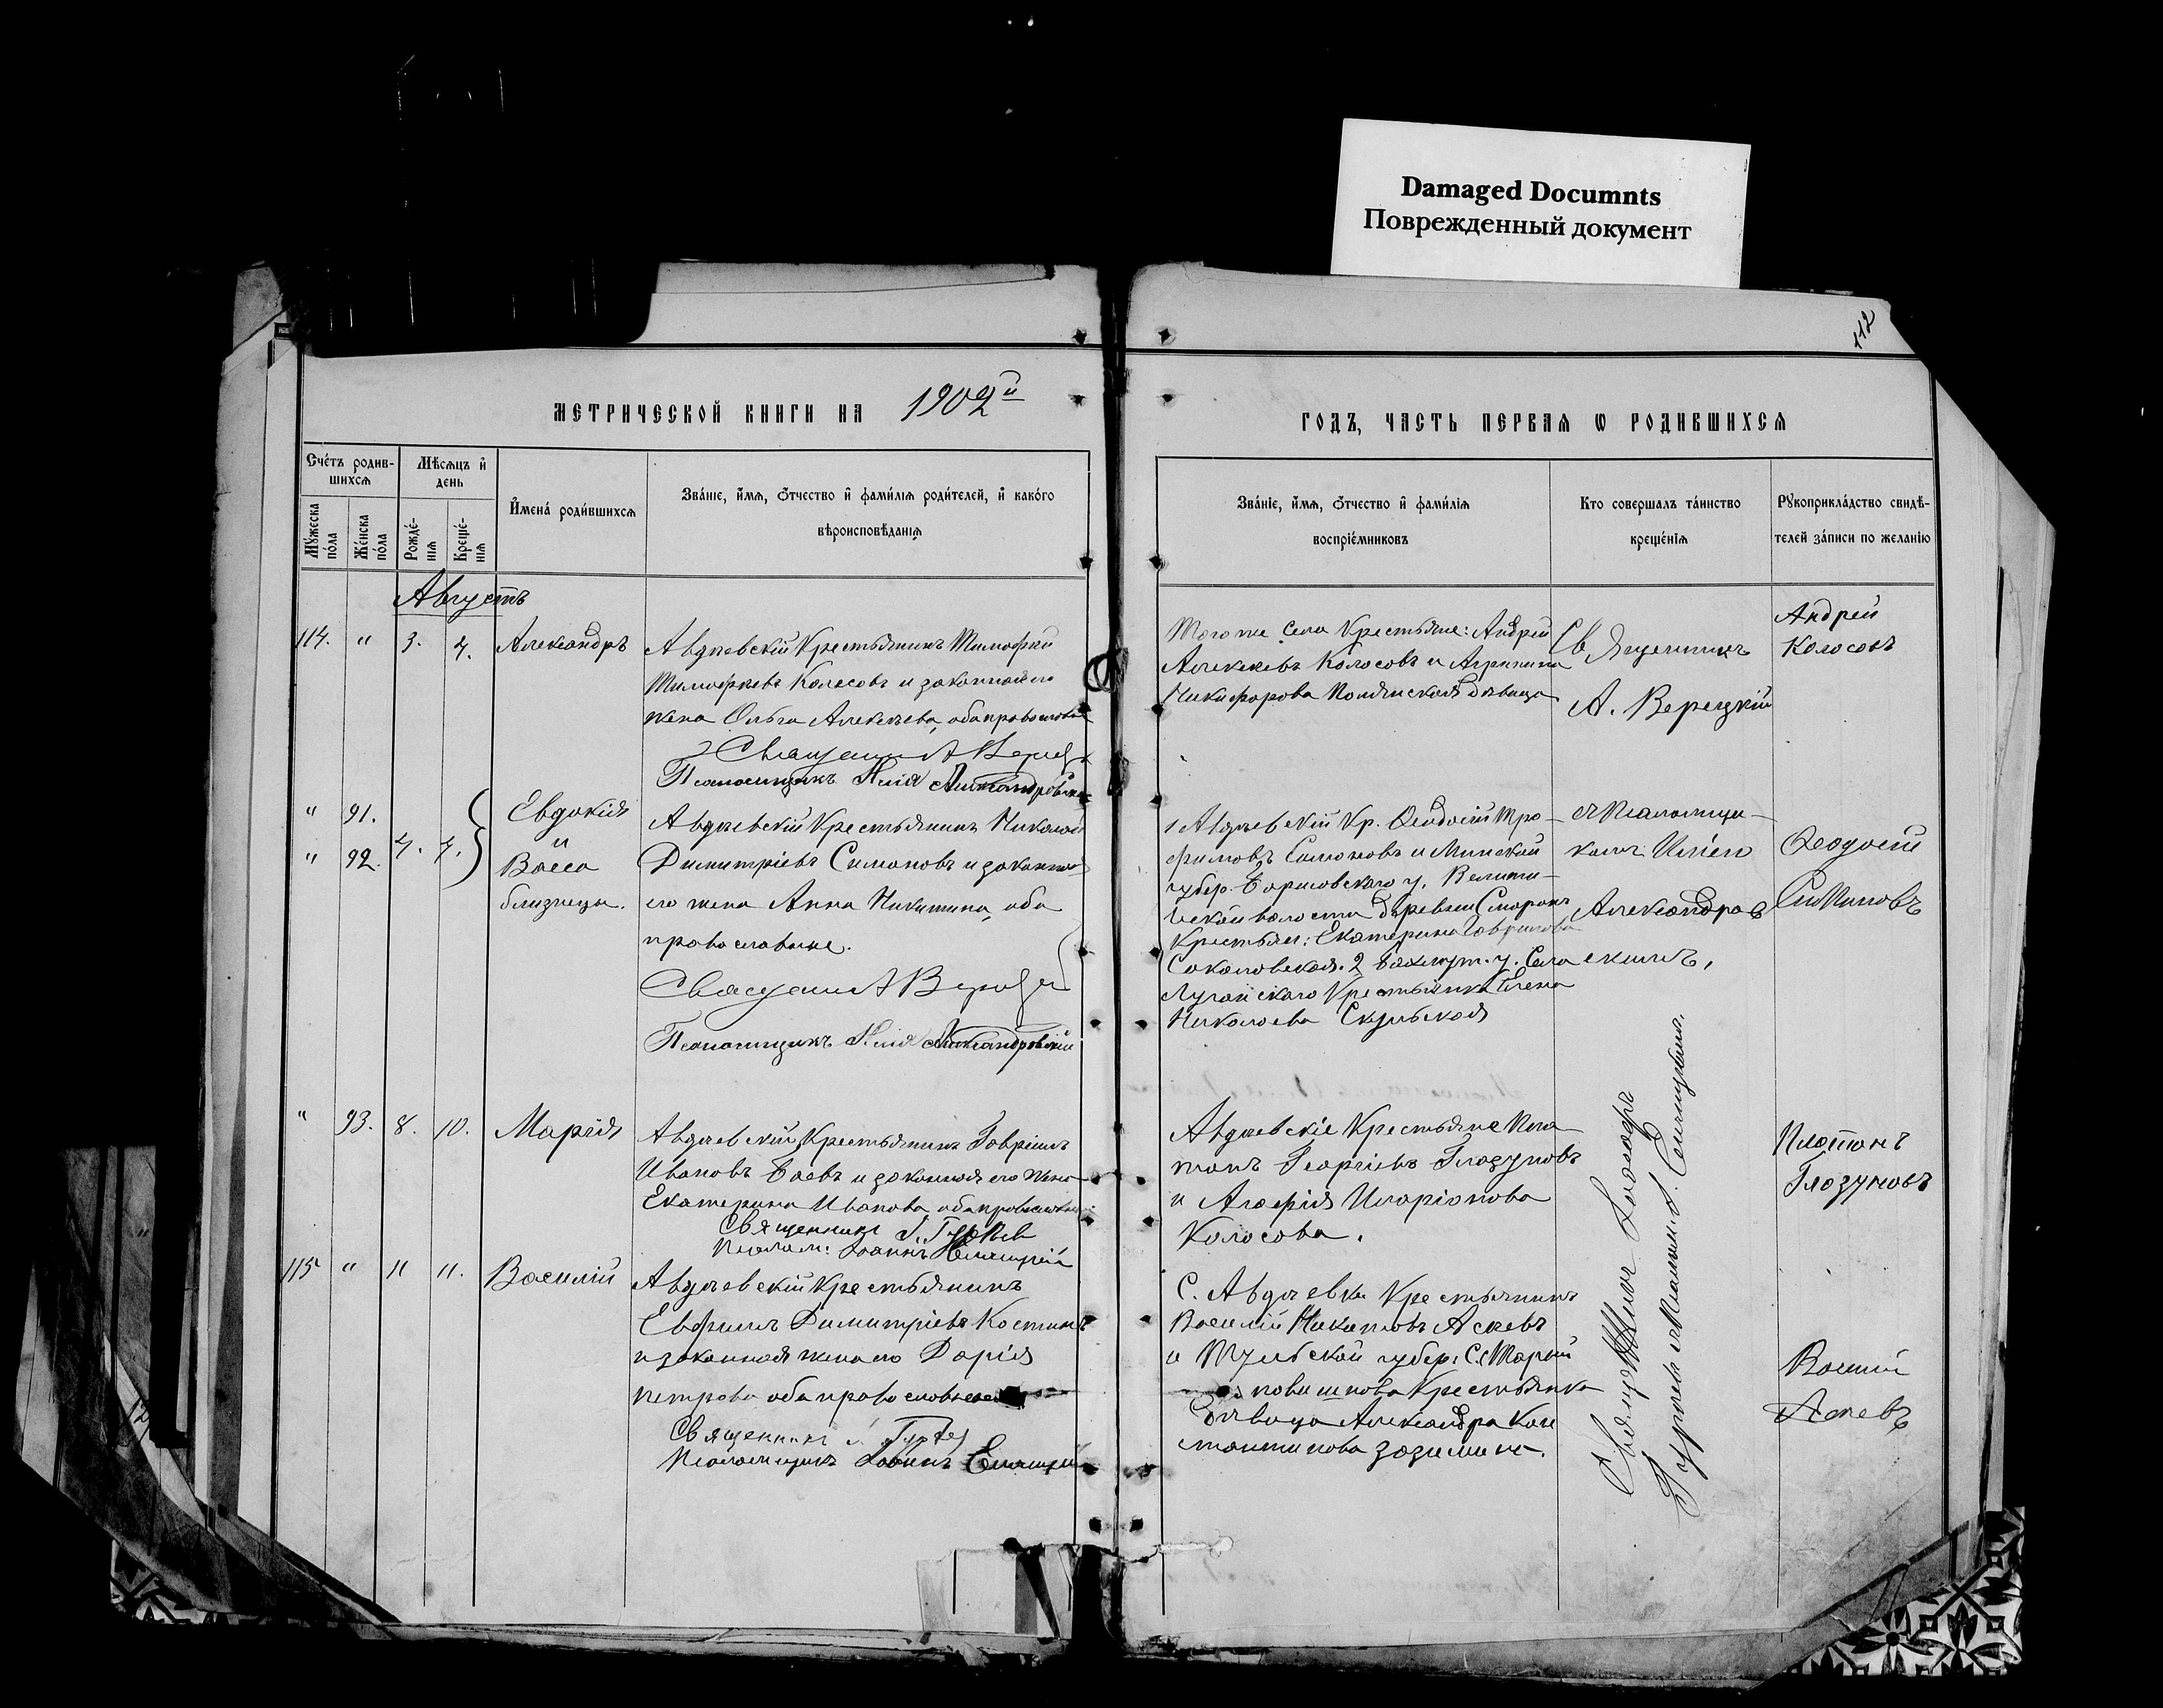 Damaged Documnts
Поврежденный документ
112
МЕТРИЧЕСКОЙ КНИГИ НА 1902й
ГОДЪ, ЧАСТЬ ПЕРВАЯ Ѡ РОДИВШИХСЯ
Счетъ родив-
шихся
Мужеска
пола
Женска
пола
Мѣсяцъ и
день
Рожде-
нія
Креще-
нія
Имена родившихся
Званіе, имя, отчество и фамилія родителей, и какого
вѣроисповѣданія
Званіе, имя, отчество и фамилія
воспріемниковъ
Кто совершалъ таинство
крещенія
Рукоприкладство свидѣ-
телей записи по желанію
Августъ
114. " 3. 4. Александръ
Авдѣевскій Крестьянинъ Тимофей
Тимофѣевъ Колосовъ и законная его
жена Ольга Алексѣева, оба православные
Псаломщикъ Илія Александровскій
Того же села Крестьяне: Андрей
Алексѣевъ Колосовъ и Агрипина
Никифорова девица
Священникъ
А. Верецкій
Андрей
Колосовъ
" 91.
" 92. 4. 4.
Евдокія
и
Васса
близнецы.
Авдѣевскій Крестьянинъ Николай
Димитріевъ Симоновъ и законная
его жена Анна Никитина, оба
православные.
Псаломщикъ Илія Александровскій
1 Авдѣевскій Кр. Ѳеодосій Тро-
фимовъ Симоновъ и Минской
губер. Борисовскаго у.
волости деревни
Крестьян: Екатерина Гаврилова
Соколовская. 2 Бахмут. у. Села
Луганскаго Крестьянка Елена
Николаева Скульская
съ Псаломщи-
комъ Иліею
Александров
скимъ,
Ѳеодосій
Симоновъ
" 93. 8. 10. Марія
Авдѣевскій Крестьянинъ Гавріилъ
Ивановъ Баевъ и законная его жена
Екатерина Иванова оба православные
Священникъ
Псалом: Іоаннъ
Авдѣевскіе Крестьяне Пла
тонъ Георгіевъ Глазуновъ
и Агафія Иларіонова
Колосова.
Платонъ
Глазуновъ
115 " 11 11. Василій
Авдѣевскій Крестьянинъ
Евфимъ Димитріевъ Костинъ
и законная жена его Дарія
Петрова оба православные
Священникъ
Псаломщикъ Іоаннъ
С. Авдѣевки Крестьянинъ
Василій Аскевъ
и Тульской губер. С.
Крестьянка
девица Александра Кон
стантинова
Василій
Аскевъ